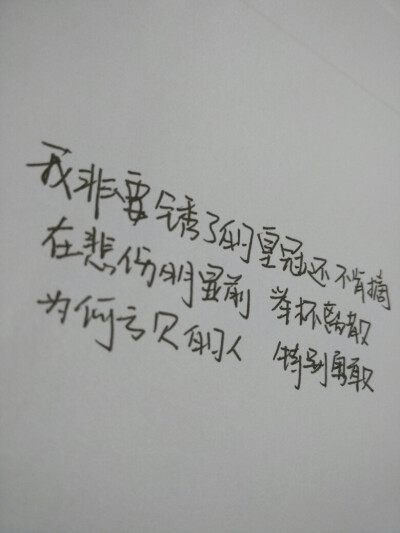 我非要锈了的皇冠还不肯摘
在悲伤明显前 举杯离散
为何亏欠的人 特别勇敢